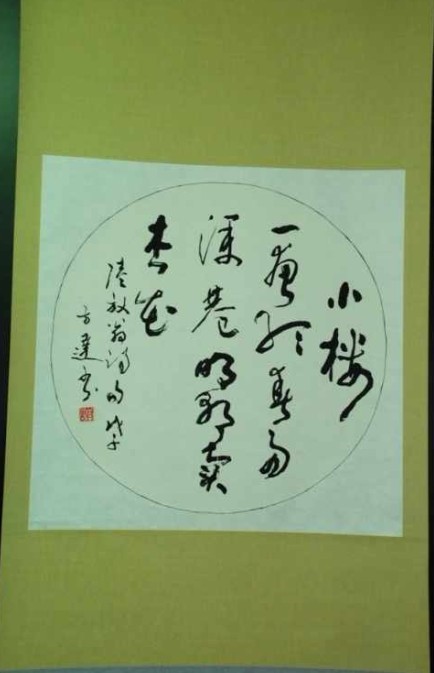 小楼
一夜听春雨
深巷明朝卖
杏花
陆放翁诗句 戊子
方建书